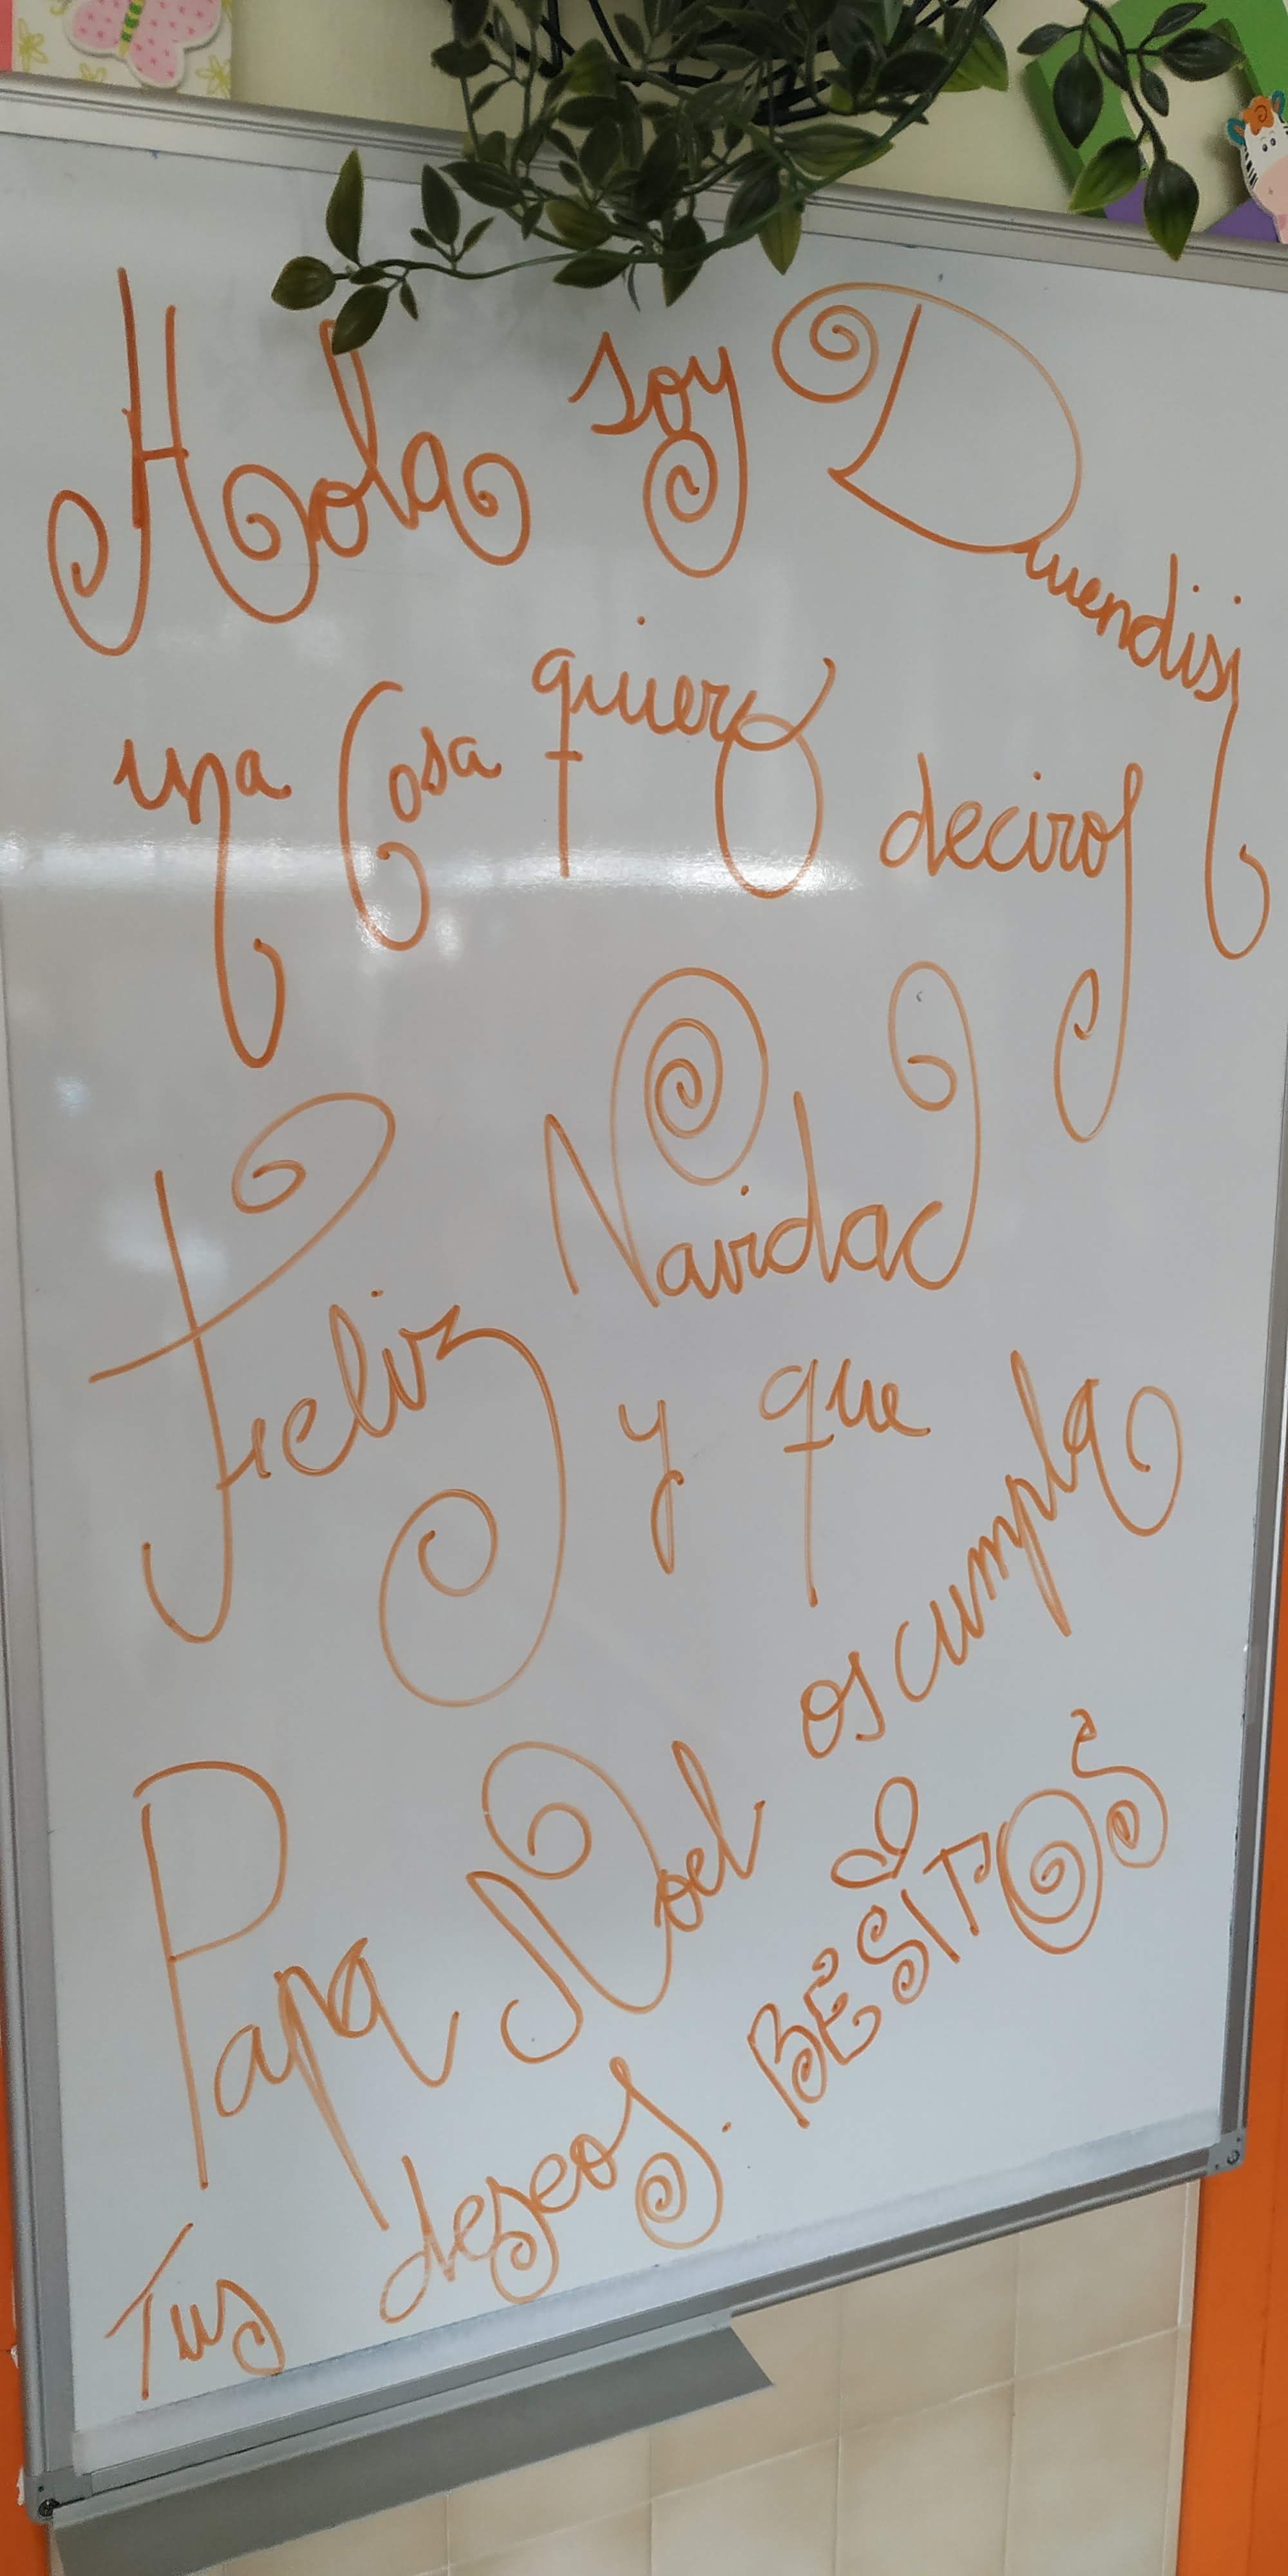 Hola soy Duendisi
una Cosa quiero deciros
Feliz Navidad
y que os cumpla
Papa Noel
Tus deseos. BESITOS